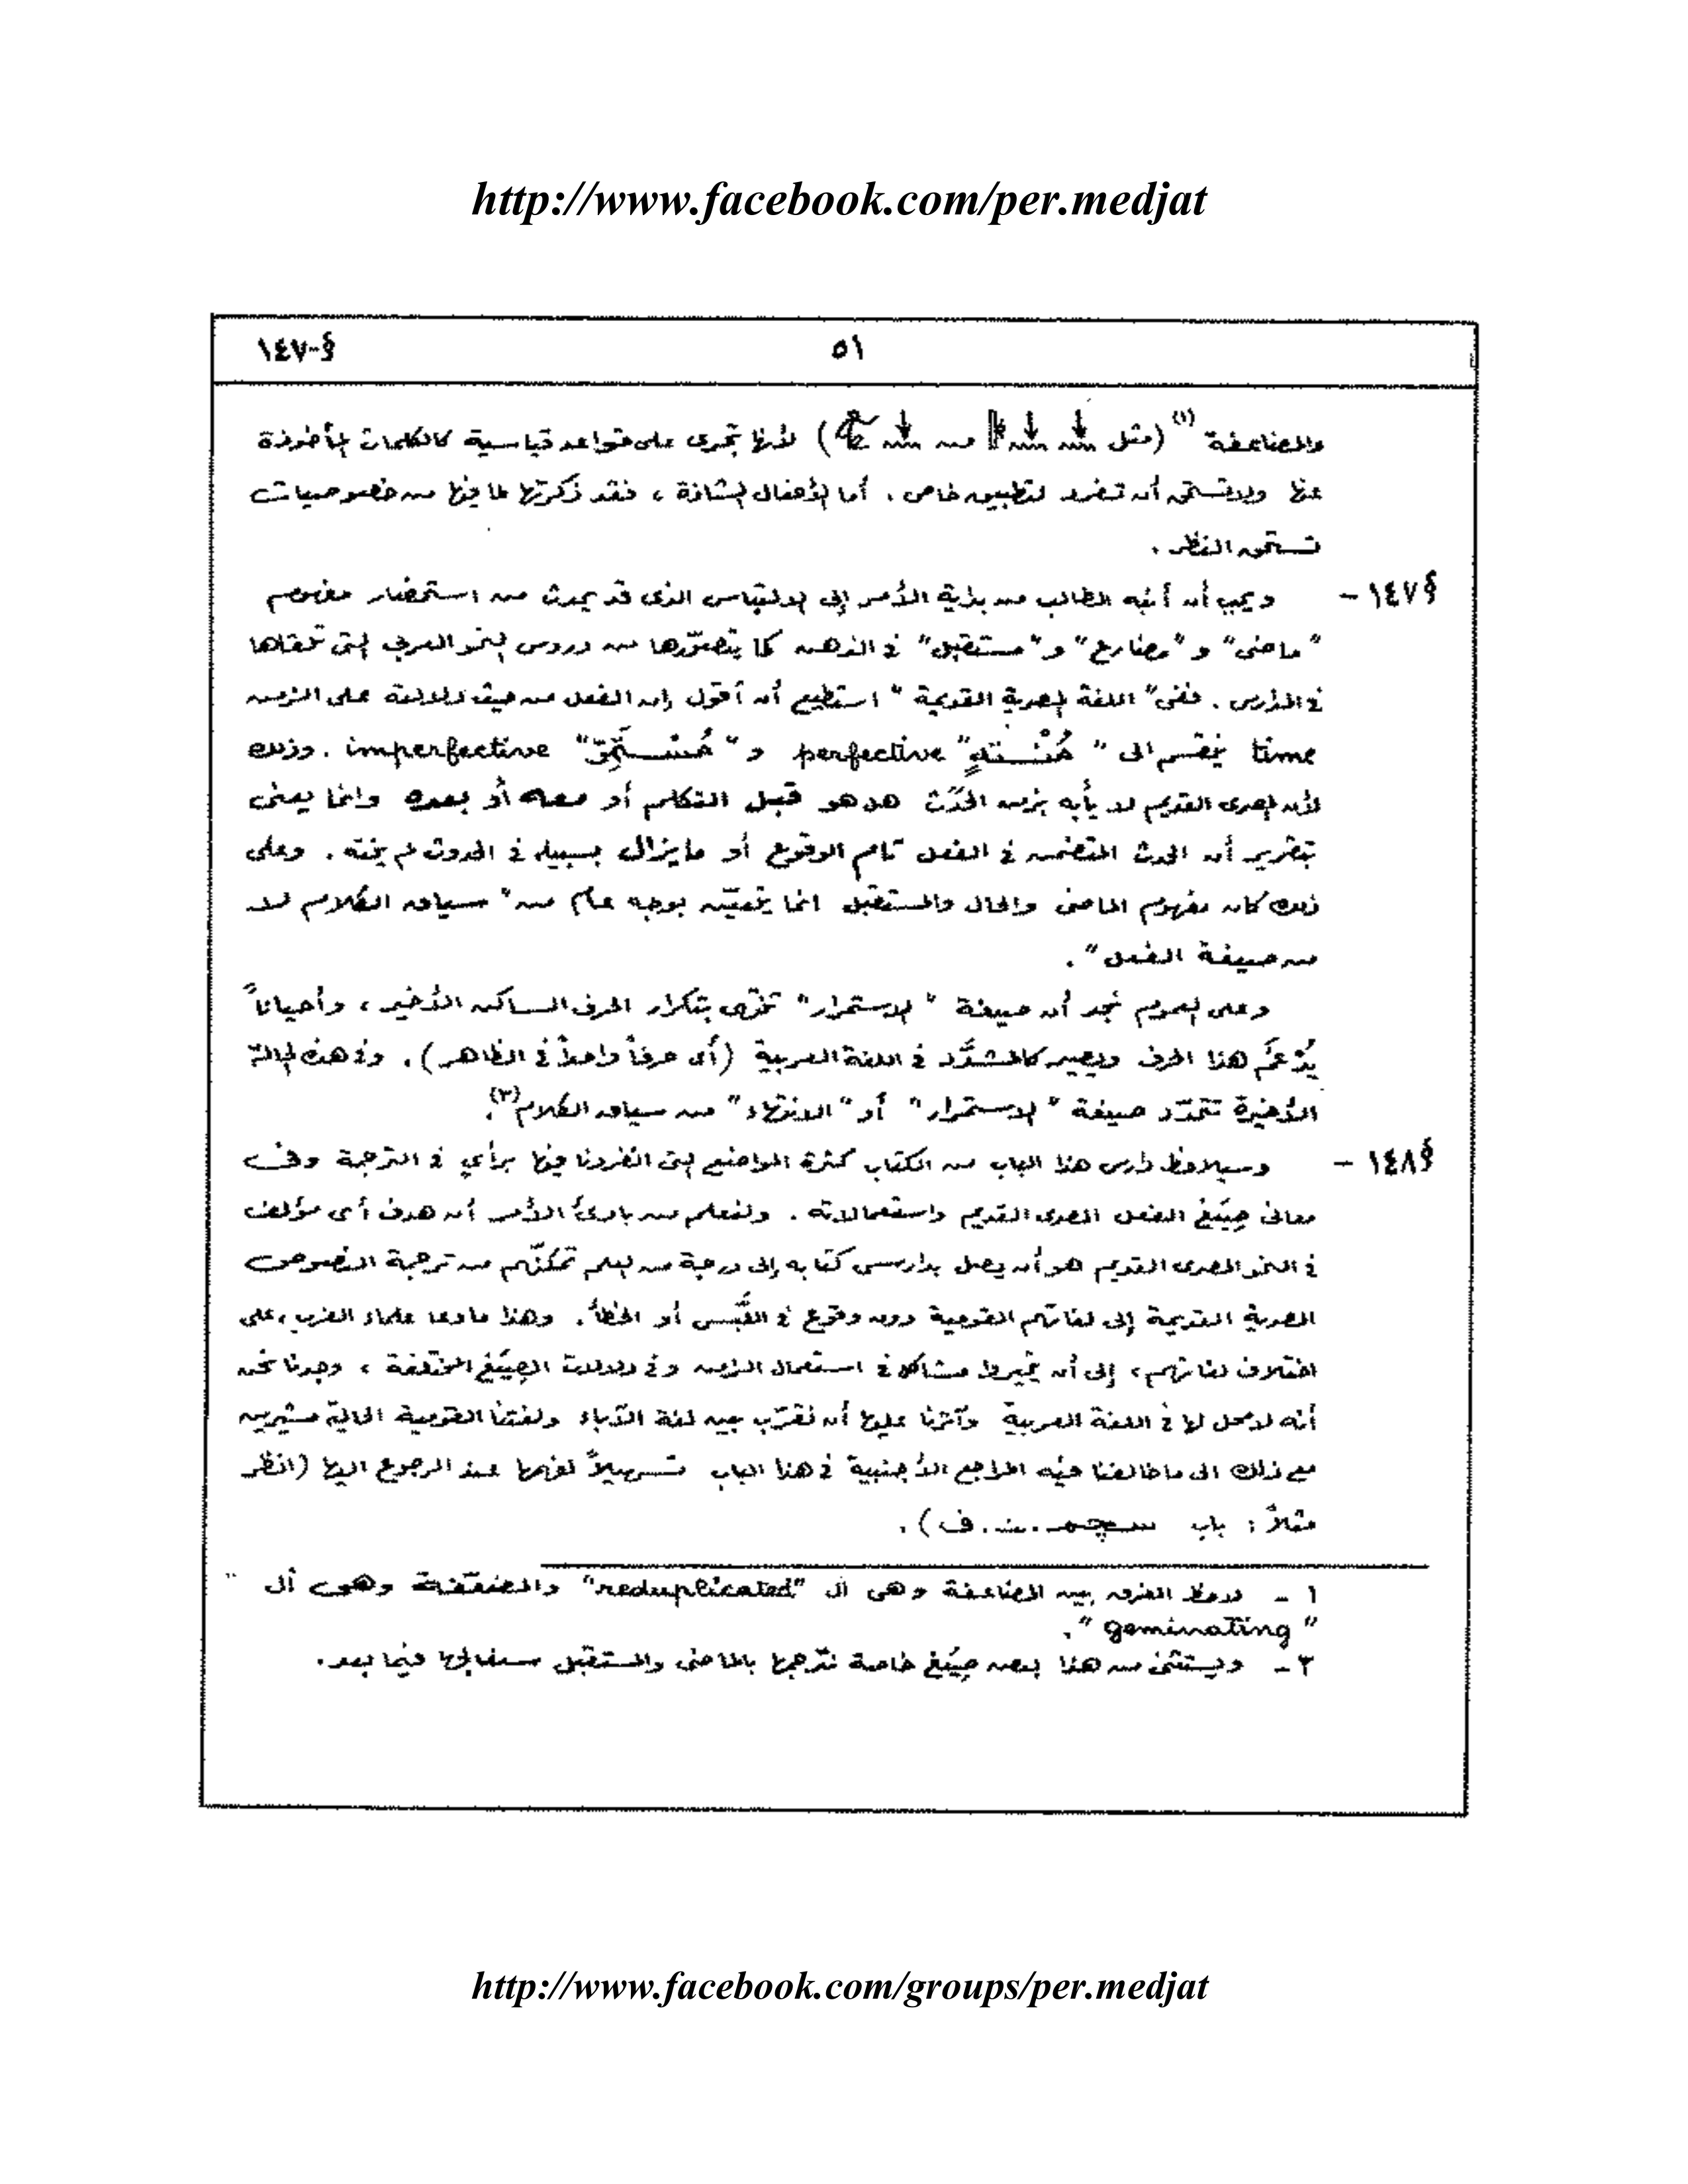 http://www.facebook.com/per.medjat
§-١٤٧
٥١
والمضاعفة (١) (مثل من) لأنها تجرى على قواعد قياسية كالكلمات المأخوذة
عنها ولا تستحق أن تفرد لتطبيق خاص . أما الأفعال الشاذة ، فقد ذكرتها لما فيها من خصوصيات
تستحق النظر .
§١٤٧ – ويجب أن أنبه الطالب من بداية الأمر إلى الالتباس الذى قد يحدث من استحضار مفهوم
"ماضى" و "مضارع" و "مستقبل" فى الذهن كما يتصوّرها من دروس النحو العربى التى تلقاها
فى المدارس . ففى "اللغة المصرية القديمة" استطيع أن أقول إن الفعل من حيث الدلالة على الزمن
time ينقسم الى "مُنْتهٍ" perfective و "مُستَمِرّ" imperfective . وذلك
لأن المصرى القديم لا يأبه بزمن الحَدَث هل هو قبل التكلم أو معه أو بعده وانما يعنى
بتقرير أن الحدث المتضمن فى الفعل تام الوقوع أو ما يزال بسبيله فى الحدوث لم ينته . وعلى
ذلك كان مفهوم الماضى والحال والمستقبل انما يتعيّن بوجه عام من "سياق الكلام لا
من صيغة الفعل" .
وعلى العموم نجد أن صيغة "الاستمرار" تختص بتكرار الحرف الساكن الأخير ، وأحياناً
يُدْغَم هذا الحرف ويصير كالمشدَّد فى اللغة العربية (أى حرفاً واحداً فى الظاهر) . وفى هذه الحالة
الأخيرة تتحدّد صيغة "الاستمرار" أو "الانتهاء" من سياق الكلام (٢).
§١٤٨ – وسيلاحظ دارس هذا الباب من الكتاب كثرة المواضع التى انفردنا فيها برأي فى الترجمة وفى
معانى صِيَغ الفعل المصرى القديم واستعمالاته . ولنعلم من بادئ الأمر أن هدف أى مؤلف
فى النحو المصرى القديم هو أن يصل بدارسى كتابه إلى درجة من العلم تمكنّهم من ترجمة النصوص
المصرية القديمة إلى لغاتهم القومية دون وقوع فى اللَّبس أو الخطأ . وهذا ما دعا علماء الغرب ، على
اختلاف لغاتهم ، إلى أن يثيروا مشاكل فى استعمال الزمن وفى دلالات الصِيَغ المختلفة ، وجدنا نحن
أنه لا محل لها فى اللغة العربية وآثرنا عليها أن نقرّب بين لغة القدماء ولغتنا القومية الحالية مشيرين
مع ذلك الى ما خالفنا فيه المراجع الأجنبية فى هذا الباب تسهيلاً لفهمها عند الرجوع اليها (انظر
مثلاً : باب سچم . ن . ف) .
١ – لاحظ الفرق بين المضاعفة وهى ال "reduplicated" والمضعّفة وهى ال
"geminating" .
٢ – ويستثنى من هذا بعض صِيَغ خاصة نترجمها بالماضى والمستقبل سنعالجها فيما بعد .
http://www.facebook.com/groups/per.medjat